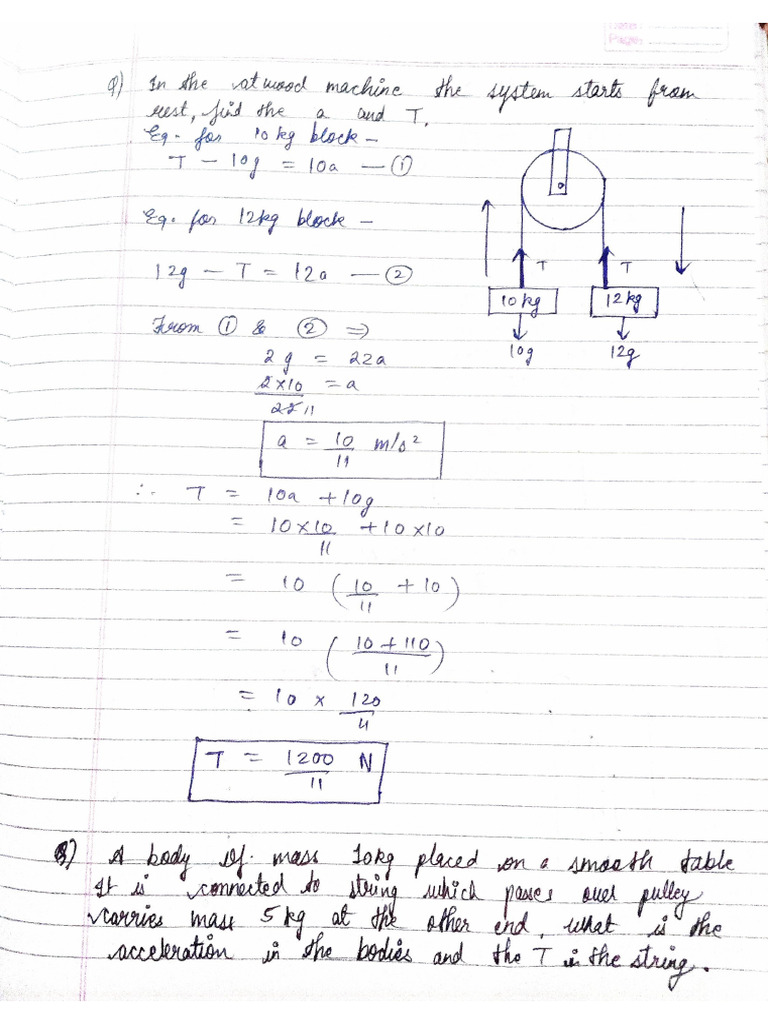 Date:
Page:
Q) In the atwood machine the system starts from
rest, find the a and T.
Eq. for 10kg block -
T - 10g = 10a — ①
Eq. for 12kg block -
12g - T = 12a — ②
From ① & ② ⇒
2g = 22a
2×10 = a
22 11
a = 10 m/s²
11
∴ T = 10a + 10g
= 10×10 + 10×10
11
= 10 (10 + 10)
11
= 10 (10+110)
11
= 10 × 120
11
T = 1200 N
11
T
T
10kg
12kg
10g
12g
Q) A body of mass 10kg placed on a smooth table
It is connected to string which passes over pulley
carries mass 5kg at the other end, what is the
acceleration in the bodies and the T in the string.